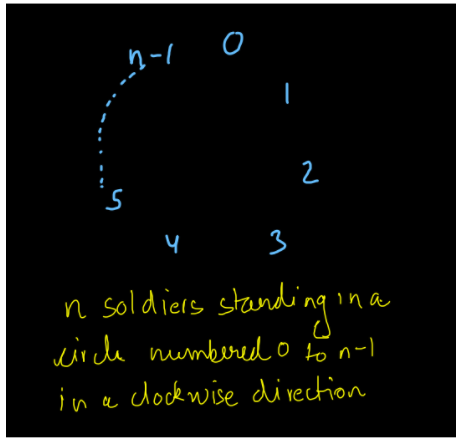 n-1 0
1
2
5
4 3
n soldiers standing in a
circle numbered 0 to n-1
in a clockwise direction